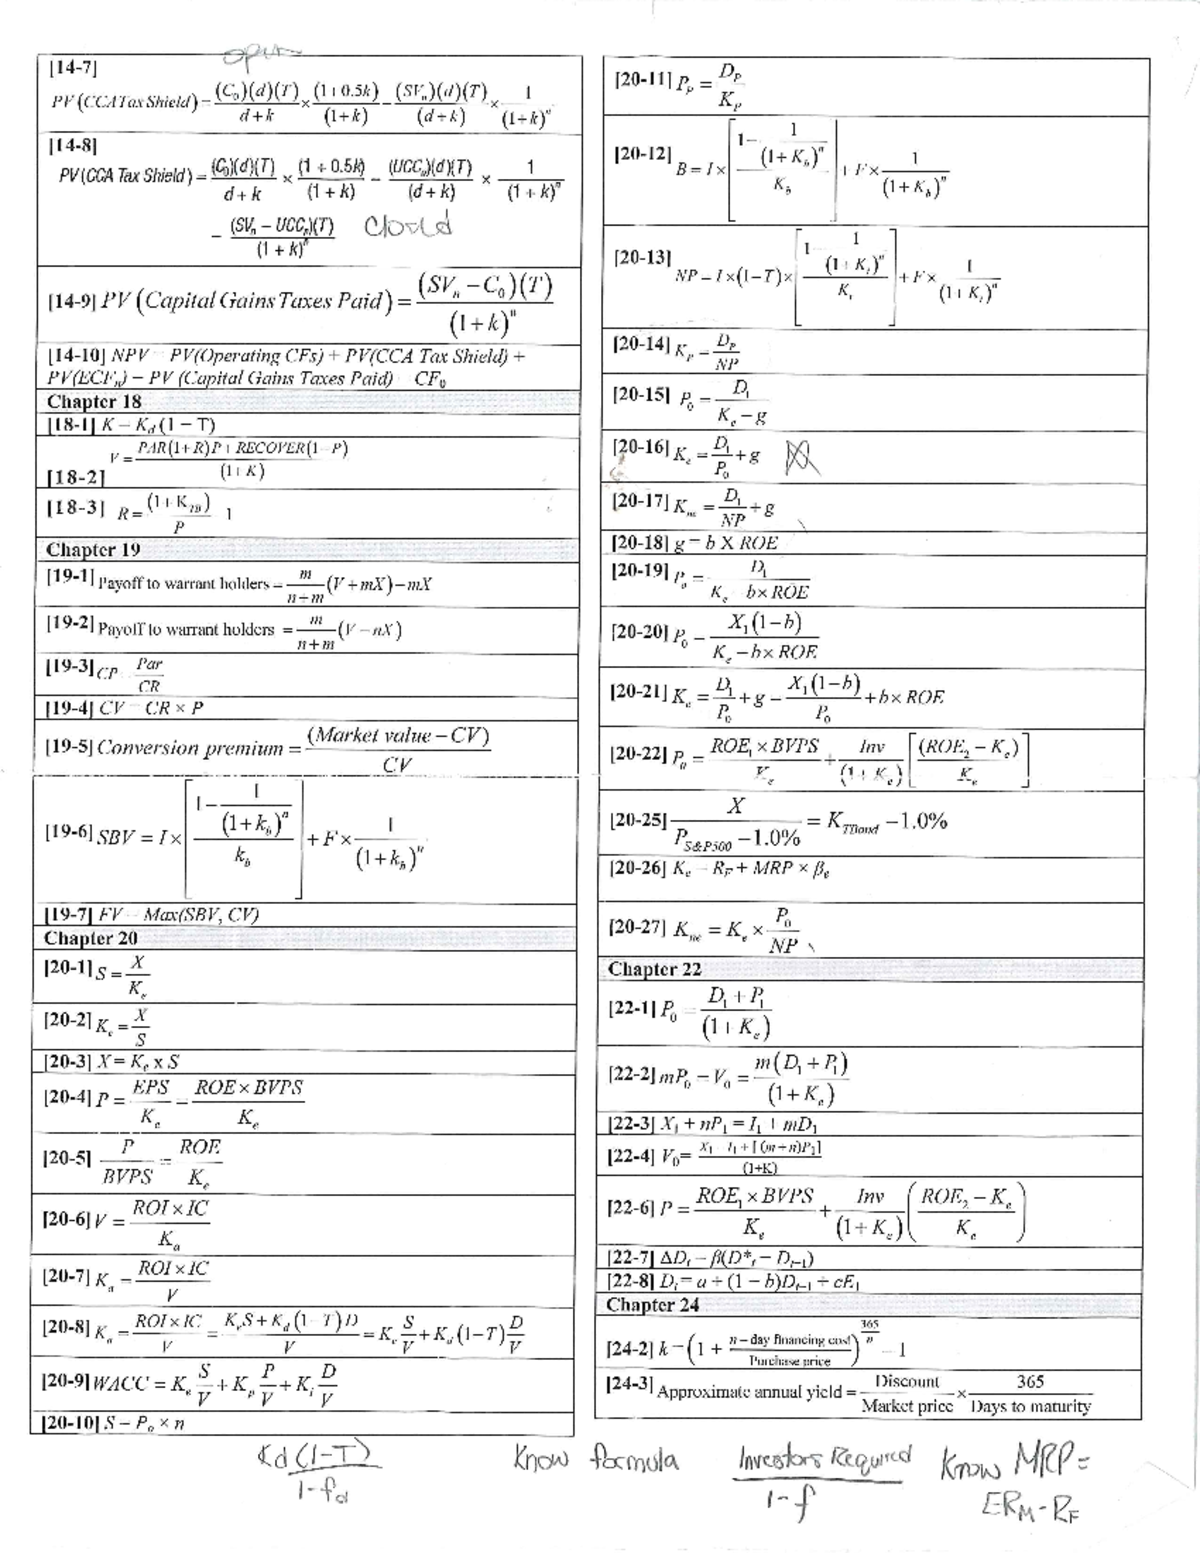 open
[14-7]
PV (CCA Tax Shield) = (C₀)(d)(T) / d+k × (1+0.5k) / (1+k) − (SVₙ)(d)(T) / (d+k) × 1 / (1+k)ⁿ
[14-8]
PV (CCA Tax Shield) = (C₀)(d)(T) / d+k × (1 + 0.5k) / (1 + k) − (UCCₙ)(d)(T) / (d+k) × 1 / (1+k)ⁿ
− (SVₙ − UCCₙ)(T) / (1 + k)ⁿ Closed
[14-9] PV (Capital Gains Taxes Paid) = (SVₙ − C₀)(T) / (1+k)ⁿ
[14-10] NPV = PV(Operating CFs) + PV(CCA Tax Shield) +
PV(ECFₙ) − PV (Capital Gains Taxes Paid) − CF₀
Chapter 18
[18-1] K = K_d (1 − T)
[18-2] V = PAR(1+R)P + RECOVER(1−P) / (1+K)
[18-3] R = (1+K_TB) / P − 1
Chapter 19
[19-1] Payoff to warrant holders = m / n+m (V + mX) − mX
[19-2] Payoff to warrant holders = m / n+m (V − nX)
[19-3] CP = Par / CR
[19-4] CV = CR × P
[19-5] Conversion premium = (Market value − CV) / CV
[19-6] SBV = I × [1 − 1 / (1+k_b)ⁿ / k_b] + F × 1 / (1+k_b)ⁿ
[19-7] FV = Max(SBV, CV)
Chapter 20
[20-1] S = X / K_e
[20-2] K_e = X / S
[20-3] X = K_e x S
[20-4] P = EPS / K_e = ROE × BVPS / K_e
[20-5] P / BVPS = ROE / K_e
[20-6] V = ROI × IC / K_a
[20-7] K_a = ROI × IC / V
[20-8] K_a = ROI × IC / V = K_e S + K_d (1−T) D / V = K_e S/V + K_d (1−T) D/V
[20-9] WACC = K_e S/V + K_p P/V + K_i D/V
[20-10] S = P₀ × n
[20-11] P_p = D_p / K_p
[20-12] B = I × [1 − 1 / (1+K_b)ⁿ / K_b] + F × 1 / (1+K_b)ⁿ
[20-13] NP = I × (1−T) × [1 − 1 / (1+K_i)ⁿ / K_i] + F × 1 / (1+K_i)ⁿ
[20-14] K_p = D_p / NP
[20-15] P₀ = D₁ / K_e − g
[20-16] K_e = D₁ / P₀ + g
[20-17] K_ne = D₁ / NP + g
[20-18] g = b X ROE
[20-19] P₀ = D₁ / K_e − b × ROE
[20-20] P₀ = X₁(1−b) / K_e − b × ROE
[20-21] K_e = D₁ / P₀ + g = X₁(1−b) / P₀ + b × ROE
[20-22] P₀ = ROE₁ × BVPS / K_e + Inv / (1+K_e) [(ROE₂ − K_e) / K_e]
[20-25] X / P_S&P500 − 1.0% = K_TBond − 1.0%
[20-26] K_e = R_F + MRP × β_e
[20-27] K_ne = K_e × P₀ / NP
Chapter 22
[22-1] P₀ = D₁ + P₁ / (1+K_e)
[22-2] mP₀ = V₀ = m(D₁ + P₁) / (1+K_e)
[22-3] X₁ + nP₁ = I₁ + mD₁
[22-4] V₀ = X₁ − I₁ + [(m+n)P₁] / (1+K)
[22-6] P = ROE₁ × BVPS / K_e + Inv / (1+K_e) (ROE₂ − K_e / K_e)
[22-7] ΔD_t = β(D*_t − D_t−1)
[22-8] D_t = a + (1 − b)D_t−1 + cE_t
Chapter 24
[24-2] k = (1 + n−day financing cost / Purchase price)^365/n − 1
[24-3] Approximate annual yield = Discount / Market price × 365 / Days to maturity
Kd(1-T) / 1-fd Know formula Investors Required / 1-f Know MRP =
ERM - RF